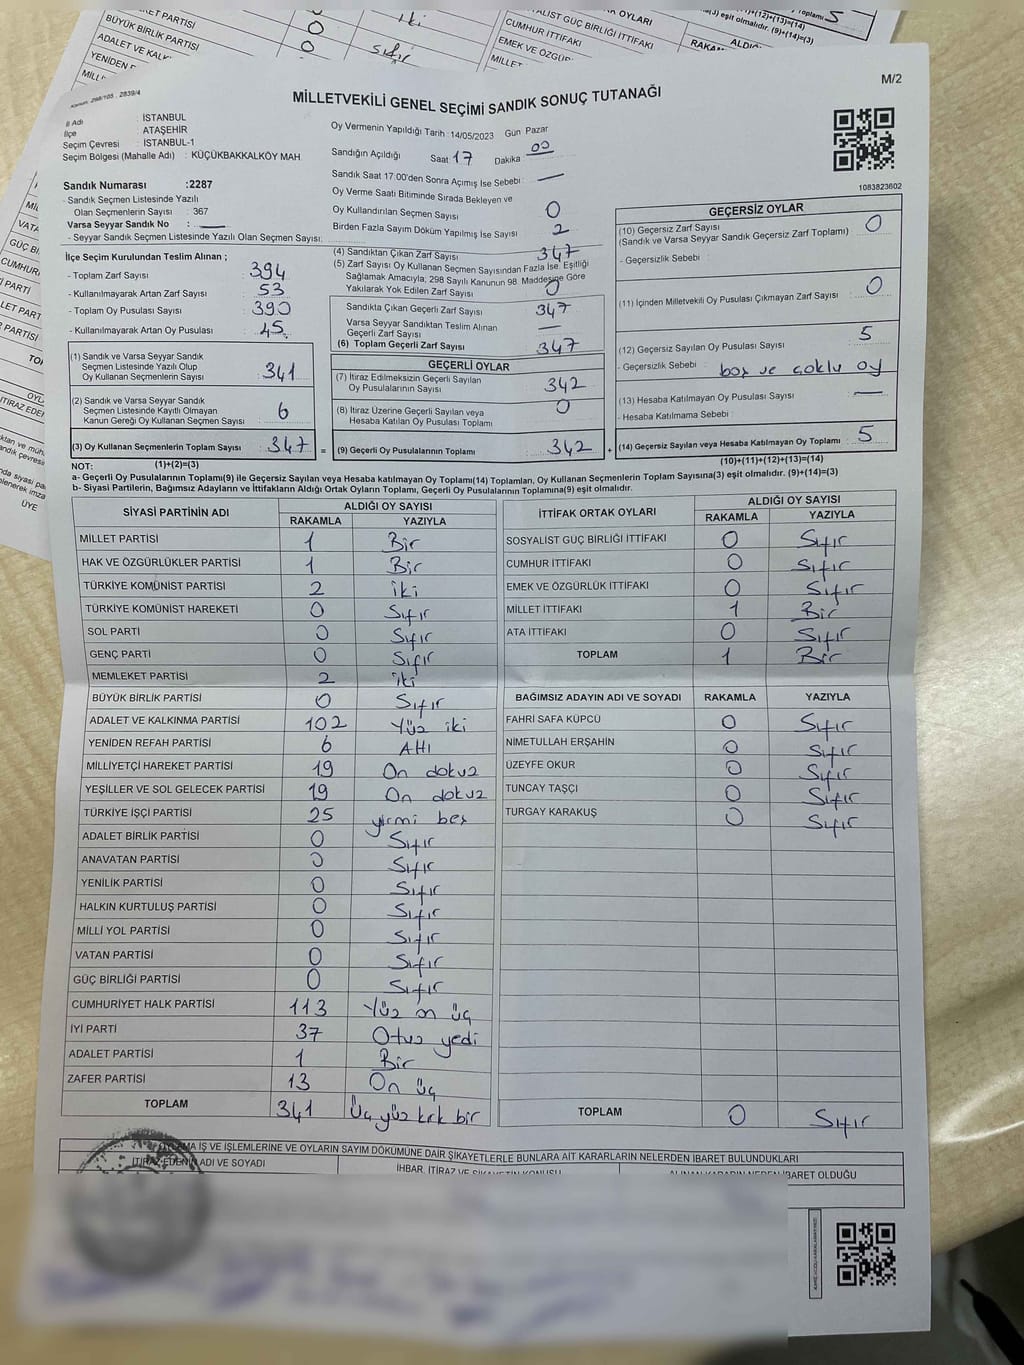 RET PARTİSİ
BÜYÜK BİRLİK PARTİSİ 0 iki
ADALET VE KALK 0 sıfır
YENİDEN
CUMHUR İTTİFAKI
EMEK VE ÖZGÜR
MİLLET
(10)+(11)+(12)+(13)=(14)
eşit olmalıdır. (9)+(14)=(3)
M/2
Kanun: 298/105 . 2839/4
MİLLETVEKİLİ GENEL SEÇİMİ SANDIK SONUÇ TUTANAĞI
İl Adı : İSTANBUL
İlçe : ATAŞEHİR
Seçim Çevresi : İSTANBUL-1
Seçim Bölgesi (Mahalle Adı) : KÜÇÜKBAKKALKÖY MAH
Oy Vermenin Yapıldığı Tarih : 14/05/2023 Gün Pazar
Sandığın Açıldığı Saat 17 Dakika 00
Sandık Saat 17:00'den Sonra Açımış İse Sebebi : —
Oy Verme Saati Bitiminde Sırada Bekleyen ve
Oy Kullandırılan Seçmen Sayısı 0
Birden Fazla Sayım Döküm Yapılmış İse Sayısı 2
1083823602
Sandık Numarası :2287
- Sandık Seçmen Listesinde Yazılı
Olan Seçmenlerin Sayısı : 367
Varsa Seyyar Sandık No : —
- Seyyar Sandık Seçmen Listesinde Yazılı Olan Seçmen Sayısı:
İlçe Seçim Kurulundan Teslim Alınan ;
- Toplam Zarf Sayısı 394
- Kullanılmayarak Artan Zarf Sayısı 53
- Toplam Oy Pusulası Sayısı 390
- Kullanılmayarak Artan Oy Pusulası 45
(1) Sandık ve Varsa Seyyar Sandık
Seçmen Listesinde Yazılı Olup
Oy Kullanan Seçmenlerin Sayısı 341
(2) Sandık ve Varsa Seyyar Sandık
Seçmen Listesinde Kayıtlı Olmayan
Kanun Gereği Oy Kullanan Seçmen Sayısı 6
(3) Oy Kullanan Seçmenlerin Toplam Sayısı 347 =
(4) Sandıktan Çıkan Zarf Sayısı 347
(5) Zarf Sayısı Oy Kullanan Seçmen Sayısından Fazla İse. Eşitliği
Sağlamak Amacıyla; 298 Sayılı Kanunun 98. Maddesine Göre
Yakılarak Yok Edilen Zarf Sayısı 0
Sandıkta Çıkan Geçerli Zarf Sayısı 347
Varsa Seyyar Sandıktan Teslim Alınan
Geçerli Zarf Sayısı —
(6) Toplam Geçerli Zarf Sayısı 347
GEÇERLİ OYLAR
(7) İtiraz Edilmeksizin Geçerli Sayılan
Oy Pusulalarının Sayısı 342
(8) İtiraz Üzerine Geçerli Sayılan veya
Hesaba Katılan Oy Pusulası Toplamı 0
(9) Geçerli Oy Pusulalarının Toplamı 342 +
GEÇERSİZ OYLAR
(10) Geçersiz Zarf Sayısı 0
(Sandık ve Varsa Seyyar Sandık Geçersiz Zarf Toplamı)
- Geçersizlik Sebebi :
(11) İçinden Milletvekili Oy Pusulası Çıkmayan Zarf Sayısı 0
(12) Geçersiz Sayılan Oy Pusulası Sayısı 5
- Geçersizlik Sebebi : boş ve çoklu oy
(13) Hesaba Katılmayan Oy Pusulası Sayısı —
- Hesaba Katılmama Sebebi :
(14) Geçersiz Sayılan veya Hesaba Katılmayan Oy Toplamı 5
NOT: (1)+(2)=(3) (10)+(11)+(12)+(13)=(14)
a- Geçerli Oy Pusulalarının Toplamı(9) ile Geçersiz Sayılan veya Hesaba katılmayan Oy Toplamı(14) Toplamları, Oy Kullanan Seçmenlerin Toplam Sayısına(3) eşit olmalıdır. (9)+(14)=(3)
b- Siyasi Partilerin, Bağımsız Adayların ve İttifakların Aldığı Ortak Oyların Toplamı, Geçerli Oy Pusulalarının Toplamına(9) eşit olmalıdır.
SİYASİ PARTİNİN ADI ALDIĞI OY SAYISI
RAKAMLA YAZIYLA
MİLLET PARTİSİ 1 Bir
HAK VE ÖZGÜRLÜKLER PARTİSİ 1 Bir
TÜRKİYE KOMÜNİST PARTİSİ 2 iki
TÜRKİYE KOMÜNİST HAREKETİ 0 Sıfır
SOL PARTİ 0 Sıfır
GENÇ PARTİ 0 Sıfır
MEMLEKET PARTİSİ 2 iki
BÜYÜK BİRLİK PARTİSİ 0 Sıfır
ADALET VE KALKINMA PARTİSİ 102 Yüz iki
YENİDEN REFAH PARTİSİ 6 Altı
MİLLİYETÇİ HAREKET PARTİSİ 19 On dokuz
YEŞİLLER VE SOL GELECEK PARTİSİ 19 On dokuz
TÜRKİYE İŞÇİ PARTİSİ 25 yirmi beş
ADALET BİRLİK PARTİSİ 0 Sıfır
ANAVATAN PARTİSİ 0 Sıfır
YENİLİK PARTİSİ 0 Sıfır
HALKIN KURTULUŞ PARTİSİ 0 Sıfır
MİLLİ YOL PARTİSİ 0 Sıfır
VATAN PARTİSİ 0 Sıfır
GÜÇ BİRLİĞİ PARTİSİ 0 Sıfır
CUMHURİYET HALK PARTİSİ 113 Yüz on üç
İYİ PARTİ 37 Otuz yedi
ADALET PARTİSİ 1 Bir
ZAFER PARTİSİ 13 On üç
TOPLAM 341 Üç yüz kırk bir
İTTİFAK ORTAK OYLARI ALDIĞI OY SAYISI
RAKAMLA YAZIYLA
SOSYALİST GÜÇ BİRLİĞİ İTTİFAKI 0 Sıfır
CUMHUR İTTİFAKI 0 Sıfır
EMEK VE ÖZGÜRLÜK İTTİFAKI 0 Sıfır
MİLLET İTTİFAKI 1 Bir
ATA İTTİFAKI 0 Sıfır
TOPLAM 1 Bir
BAĞIMSIZ ADAYIN ADI VE SOYADI RAKAMLA YAZIYLA
FAHRİ SAFA KÜPCÜ 0 Sıfır
NİMETULLAH ERŞAHİN 0 Sıfır
ÜZEYFE OKUR 0 Sıfır
TUNCAY TAŞÇI 0 Sıfır
TURGAY KARAKUŞ 0 Sıfır
TOPLAM 0 Sıfır
İŞ VE İŞLEMLERİNE VE OYLARIN SAYIM DÖKÜMÜNE DAİR ŞİKAYETLERLE BUNLARA AİT KARARLARIN NELERDEN İBARET BULUNDUKLARI
İTİRAZ EDENİN ADI VE SOYADI İHBAR, İTİRAZ VE ŞİKAYETİN KONUSU ALINAN KARARIN NEDEN İBARET OLDUĞU